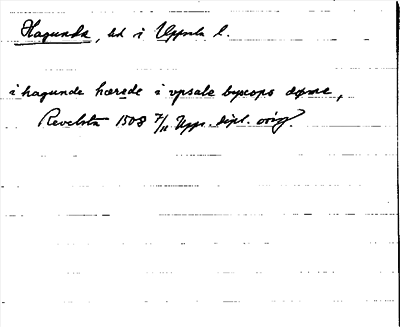 Hagunda, hd i Uppsala l.
i hagunde hærede i vpsale byscops døme,
Revelsta 1508 7/12 Upps. dipl. orig.